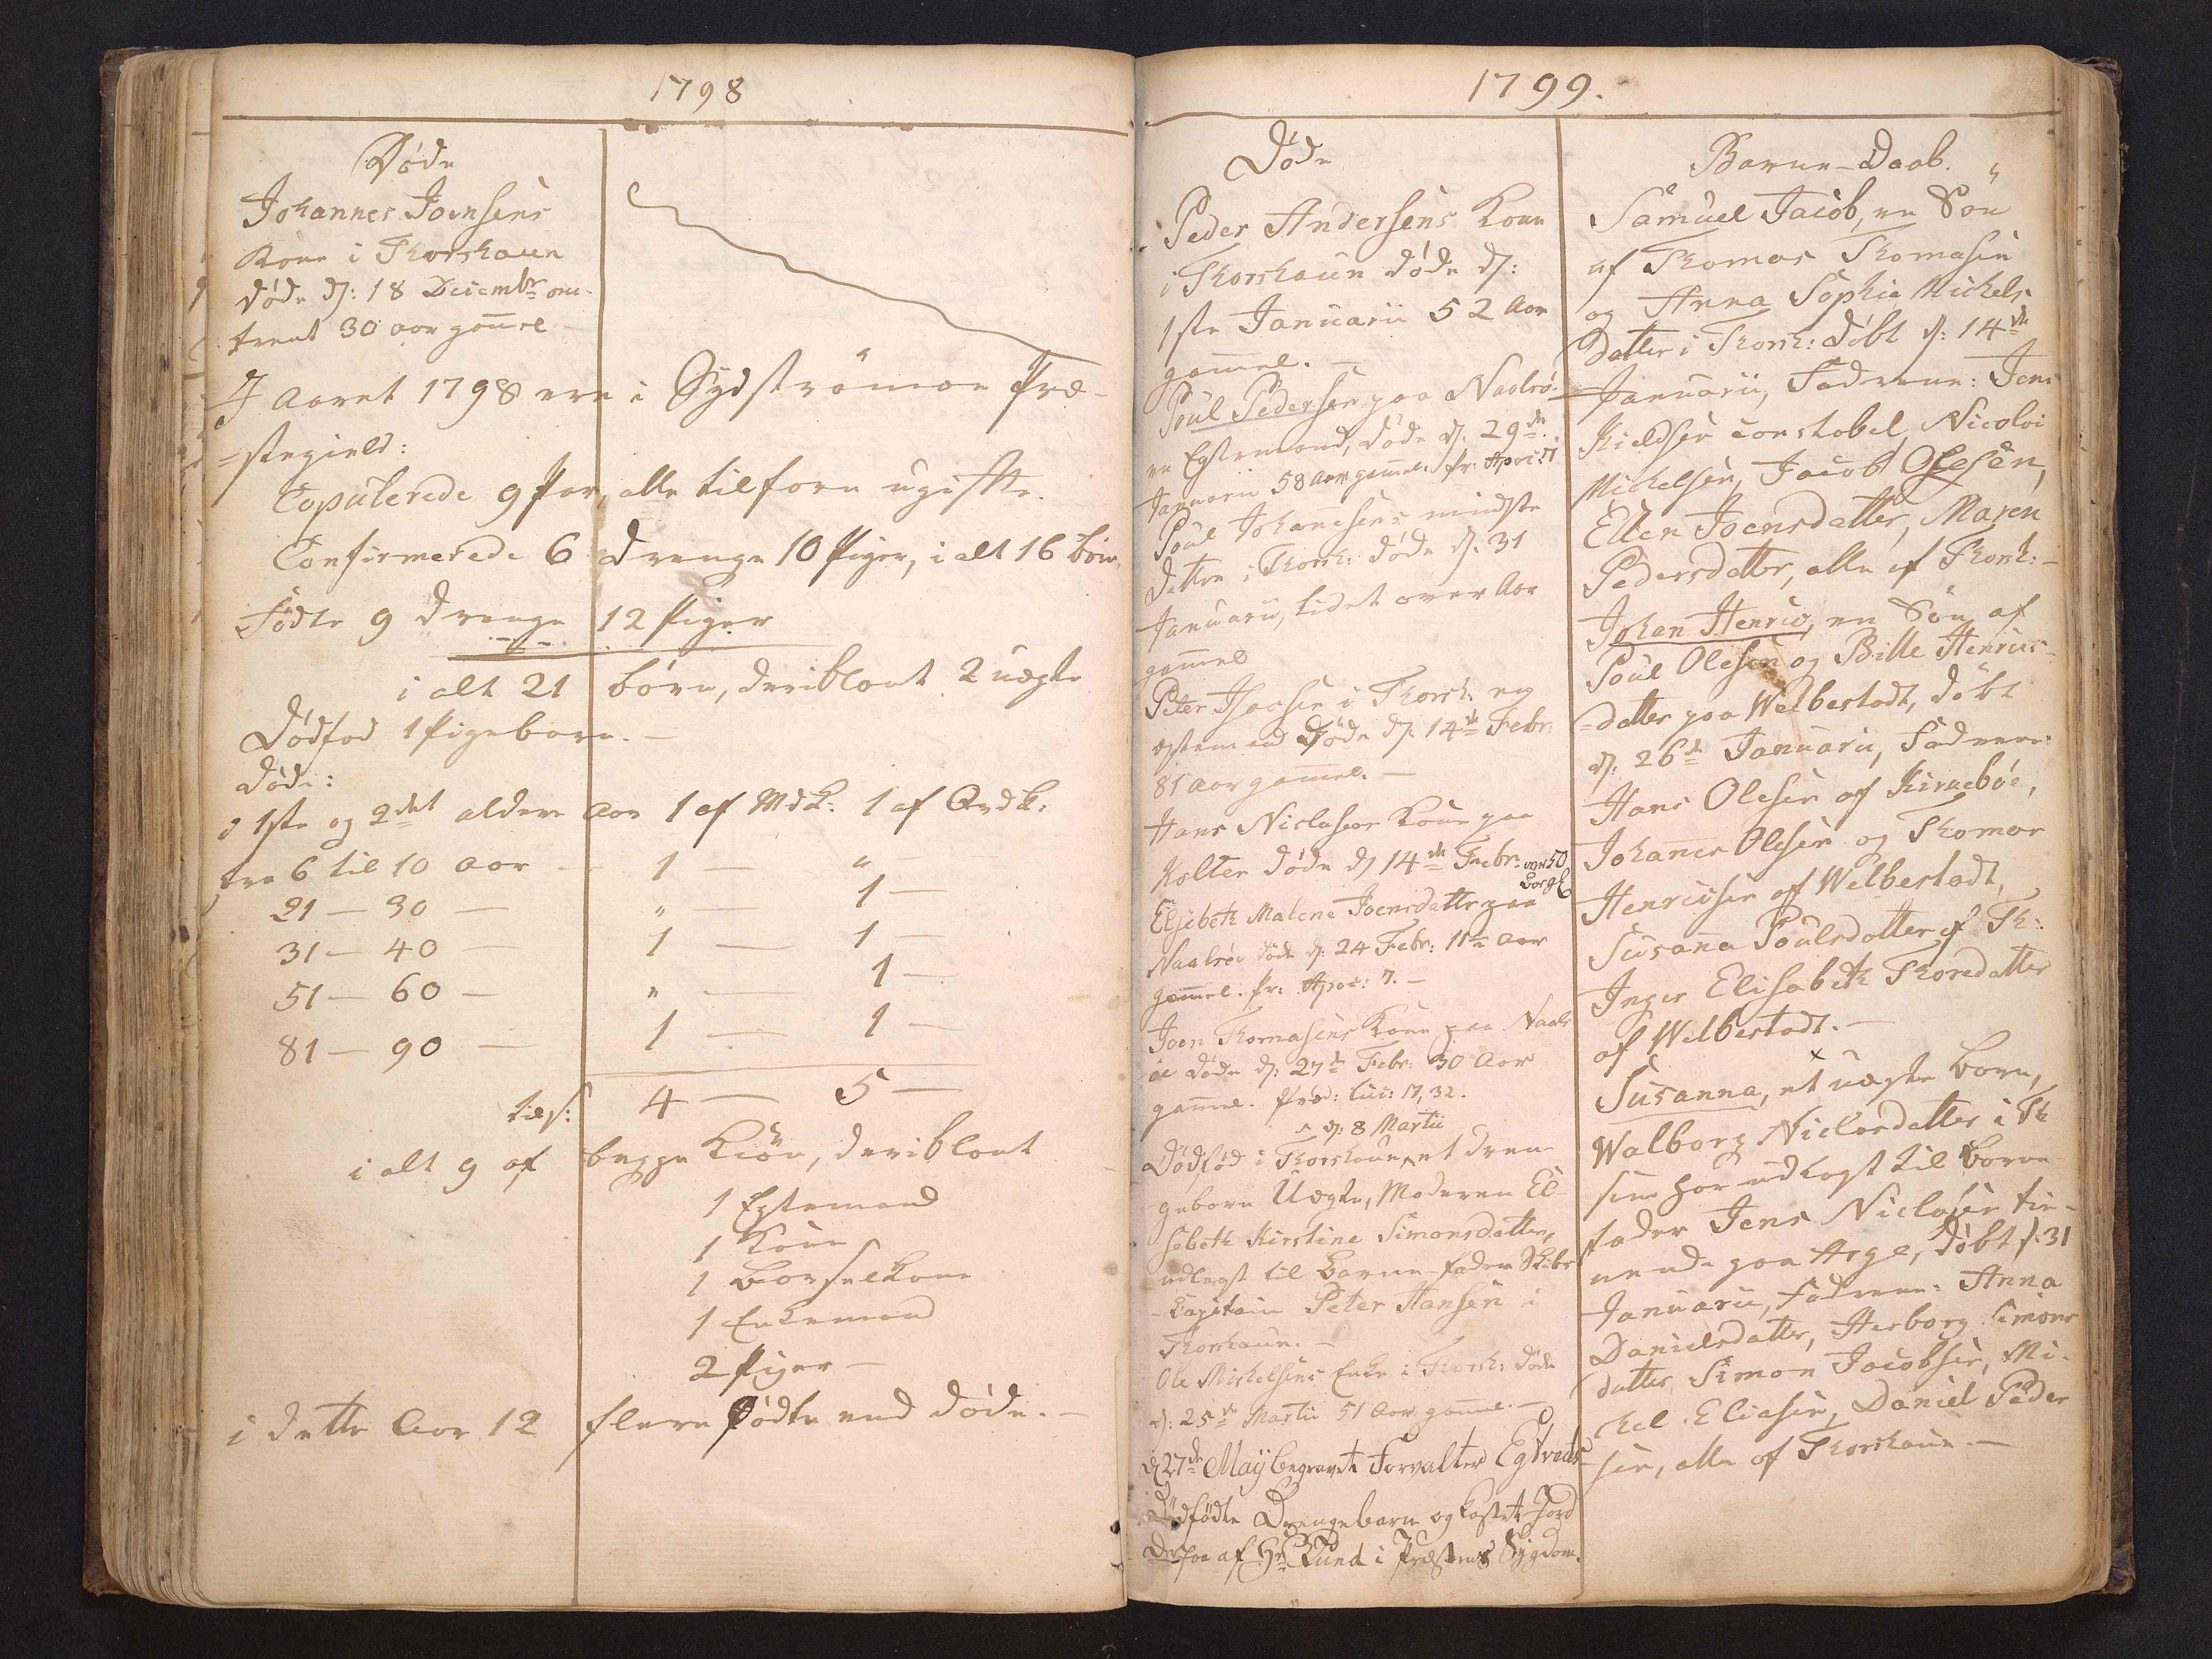 1798
Døde
Johannes Joensens
Kone i Thorshaun
døde d: 18 Decembr om-
trent 30 aar gamel
I Aaret 1798 ere i Sydstrømøe Præ-
=stegield:
Copulerede 9 Par, alle tilforn ugifte.
Confirmerede 6 Drenge 10 Piger, i alt 16 børn.
Fødte 9 Drenge 12 Piger
i alt 21 børn, deriblant 2 uægte
Dødfød 1 Pigebarn. —
Døde:
i 1ste og 2det alders Aar 1 af Mdk: 1 af Qvdk:
fra 6 til 10 Aar — 1 — " —
21 — 30 — " — 1 —
31 — 40 — 1 — 1 —
51 — 60 — " — 1 —
81 — 90 — 1 — 1 —
tils: 4 — 5 —
i alt 9 af begge Kiøn, deriblant
1 Egtemand
1 Kone
1 Barselkone
1 Enkemand
2 Piger —
i dette Aar 12 flere fødte end døde. —
1799.
Døde
Peder Andersens Kone
i Thorshaun døde d:
1ste Januarii 52 Aar
gamel. —
Poul Pedersen paa Naalsø
en Egtemand, døde d. 29de
Januarii 58 Aar gamel. Pr: Apoc: 7
Poul Johannesens mindste
datter i Thorsh: døde d. 31
Januarii, lidet over Aar
gamel
Peter Isacsen i Thorsh: en
egtemand døde d: 14de Febr:
81 Aar gamel. —
Hans Niclasens Kone paa
Kolter døde d 14de Febr. over 50
Barsel
Elsebeth Malene Joensdatter paa
Naalsøe døde d: 24 Febr: 11te Aar
gamel. Pr: Apoc: 7. —
Joen Thomasens Kone paa Naals
øe døde d: 27de Febr: 30 Aar
gamel. Præd: Luc: 17, 32.
^ d: 8 Martii
Dødfød i Thorshaun ^ et Dren-
gebarn Uægte, Moderen El-
sebeth Kirstine Simonsdatter,
udlagt til Barne-fader Skibs
-Capitain Peter Hansen i
Thorshaun. —
Ole Michelsens Enke i Thorsh: døde
d: 25de Martii 51 Aar gamel. —
d 27de Maÿ begravet Forvalter Egtveds
dødfødte Drengebarn og kastet Jord
derpaa af Hr Lund i Præstens Sygdom.
Barne-Daab.
Samuel Jacob, en Søn
af Thomas Thomasen
og Anna Sophie Michels
datter i Thorsh: døbt d: 14de
Januarii, Fadderne: Jens
Kieldsen constabel, Nicolai
Michelsen, Jacob Olesen,
Ellen Joensdatter, Maren
Pedersdatter, alle af Thorsh: —
Johan Henric, en Søn af
Poul Olesen og Bille Henrics-
=datter paa Welbestadt, døbt
d: 26de Januarii, Fadderne:
Hans Olesen af Kirkebøe,
Johannes Olesen og Thomas
Henricsen af Welbestadt,
Susana Poulsdatter af Th:
Inger Elisabeth Thoresdatter
af Welbestadt. —
Susanna, et uægte barn,
Walborg Niclasdatter i Th
som har udlagt til Barne
fader Jens Niclasen tie-
nende paa Arge, døbt d: 31
Januarii, Fadderne: Anna
Danielsdatter, Herborg Simons
datter, Simon Jacobsen, Mi-
chel Eliasen, Daniel Peder
sen, alle af Thorshaun. —